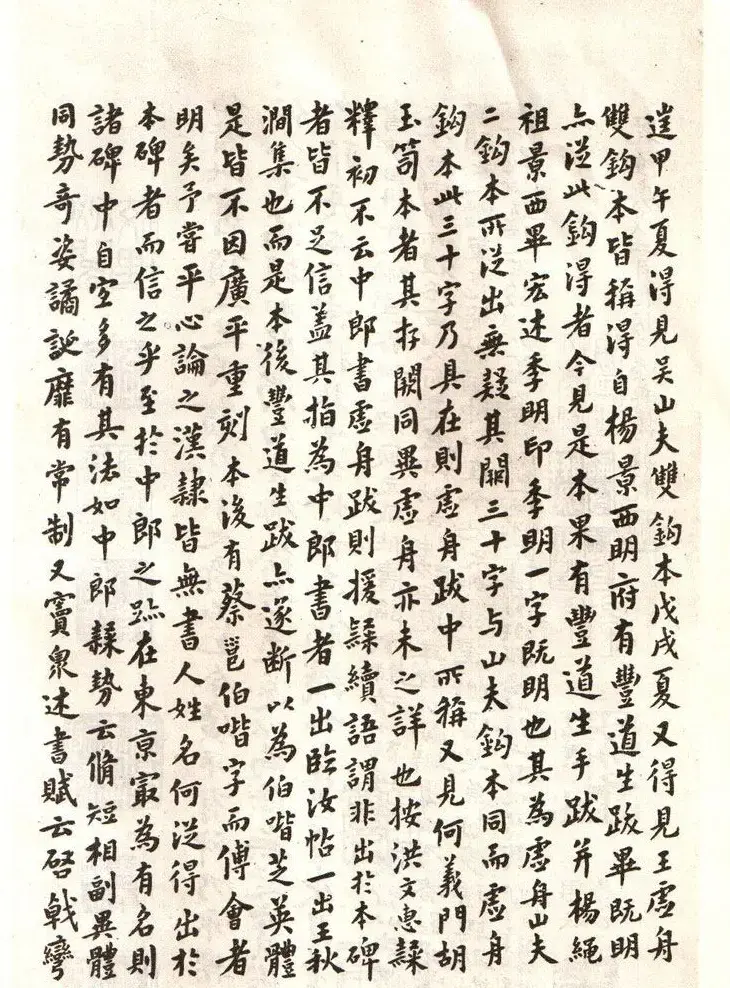 逞甲午夏得見吴山夫雙鈎本戊戌夏又得見王虛舟
雙鈎本皆稱得自楊景西明府有豐道生跋畢既明
亦從此鈎得者今見是本果有豐道生手跋并楊繩
祖景西畢宏述季明印季明一字既明也其為虛舟山夫
二鈎本所從出無疑其闕三十字与山夫鈎本同而虛舟
鈎本此三十字乃具在則虛舟跋中所稱又見何義門胡
玉笥本者其存闕同異虛舟亦未之詳也按洪文惠隸
釋初不云中郎書虛舟跋則援隸續語謂非出於本碑
者皆不足信蓋其指為中郎書者一出臨汝帖一出王秋
澗集也而是本後豐道生跋亦遂斷以為伯喈芝英體
是皆不因廣平重刻本後有蔡邕伯喈字而傅會者
明矣予嘗平心論之漢隸皆無書人姓名何從得出於
本碑者而信之乎至於中郎之跡在東京最為有名則
諸碑中自宜多有其法如中郎隸勢云脩短相副異體
同勢奇姿譎誕靡有常制又竇臮述書賦云啓戟彎